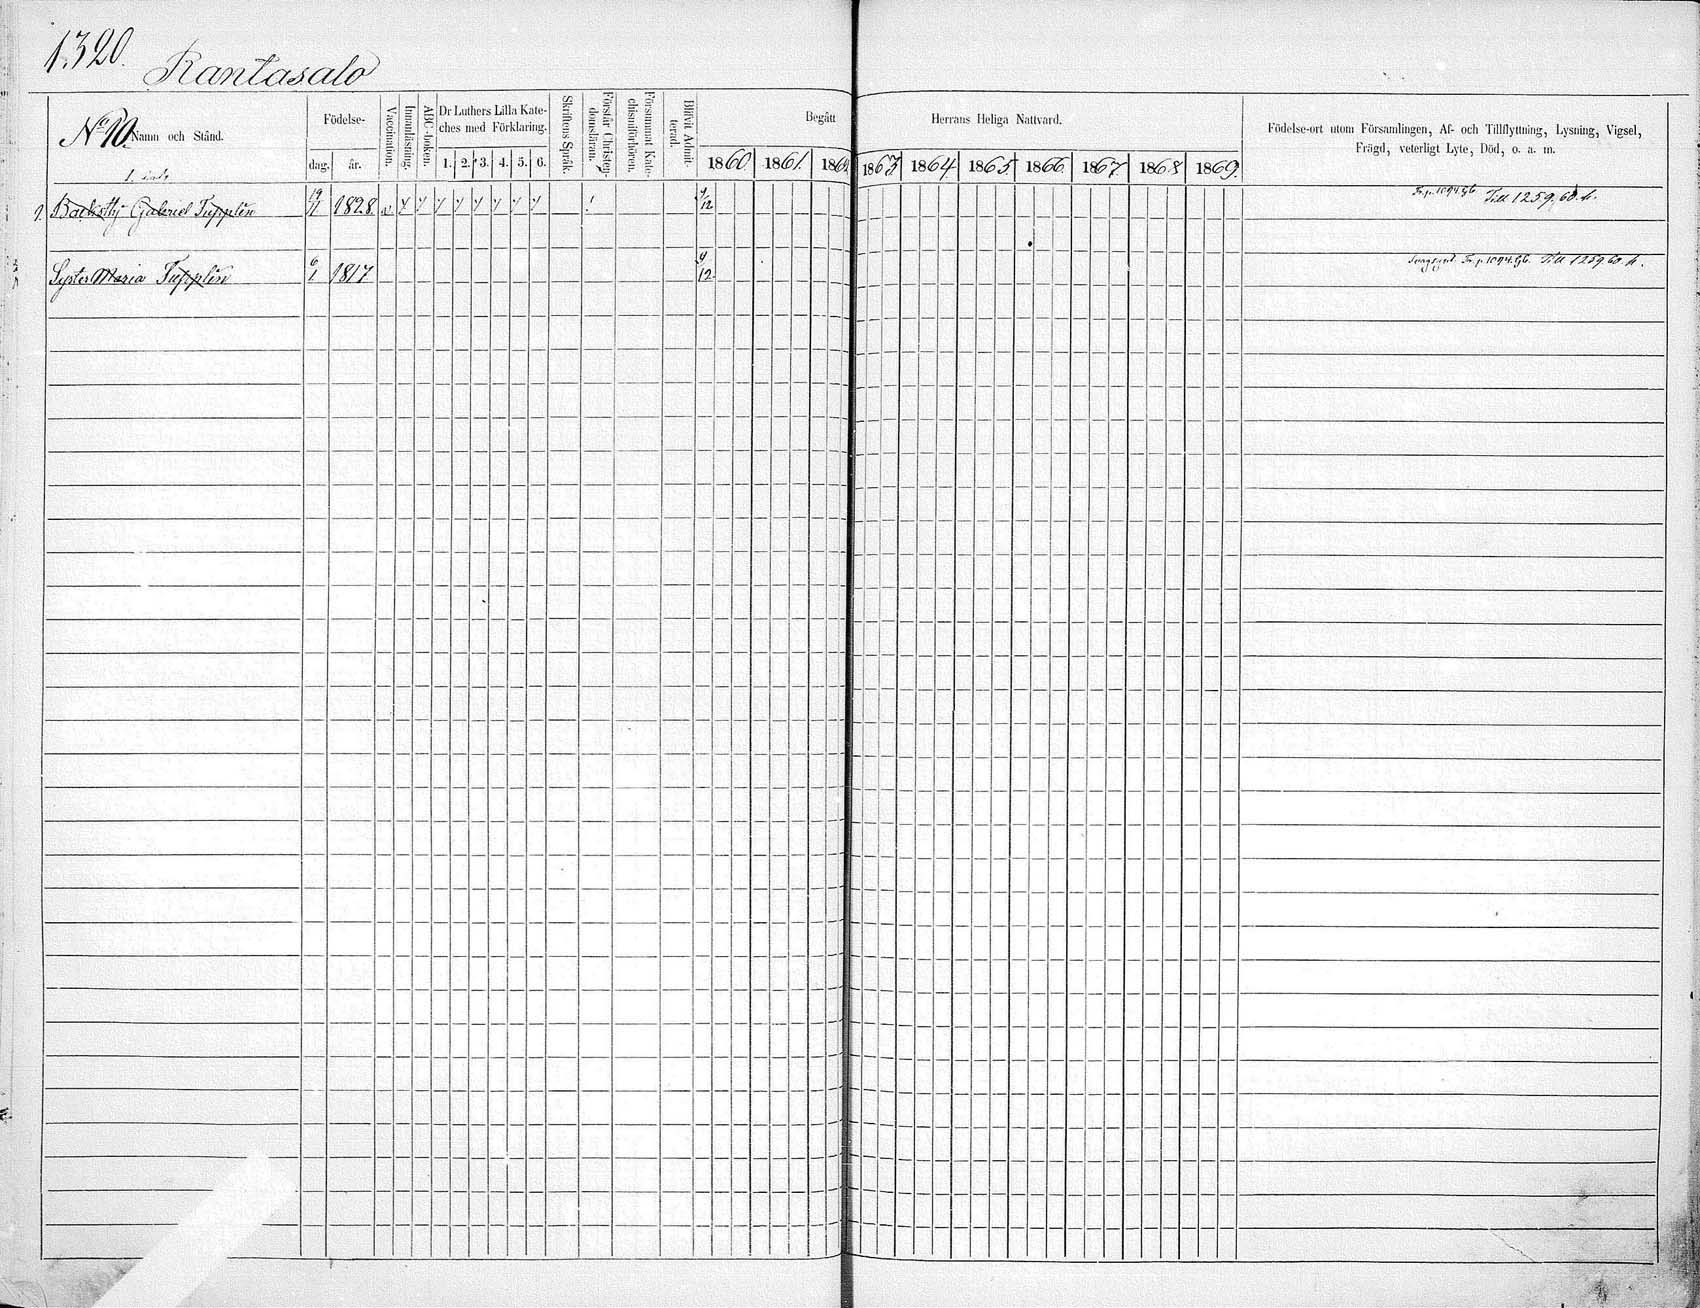 1320.
Rantasalo
No 10.
Namn och Stånd.
Födelse-
dag. år.
Vaccination.
Innanläsning.
ABC-boken.
Dr Luthers Lilla Kate-
ches med Förklaring.
1. 2. 3. 4. 5. 6.
Skriftens Språk.
Förstår Christen-
domsläran.
Försummat Kate-
chismiförhören.
Blifvit Admit-
terad.
Begått Herrans Heliga Nattvard.
1860 1861. 186 1863 1864. 1865. 1866. 1867. 1868 1869.
Födelse-ort utom Församlingen, Af- och Tillflyttning, Lysning, Vigsel,
Frägd, veterligt Lyte, Död, o. a. m.
1. Backsttj Gabriel Tupplin 19/11 1828. v. 4/12 Fr. p. 1094. Till 1259, 60.
Syster Maria Tupplin 6/1 1817 9/12 Fr. p. 1094. Till 1259 60.